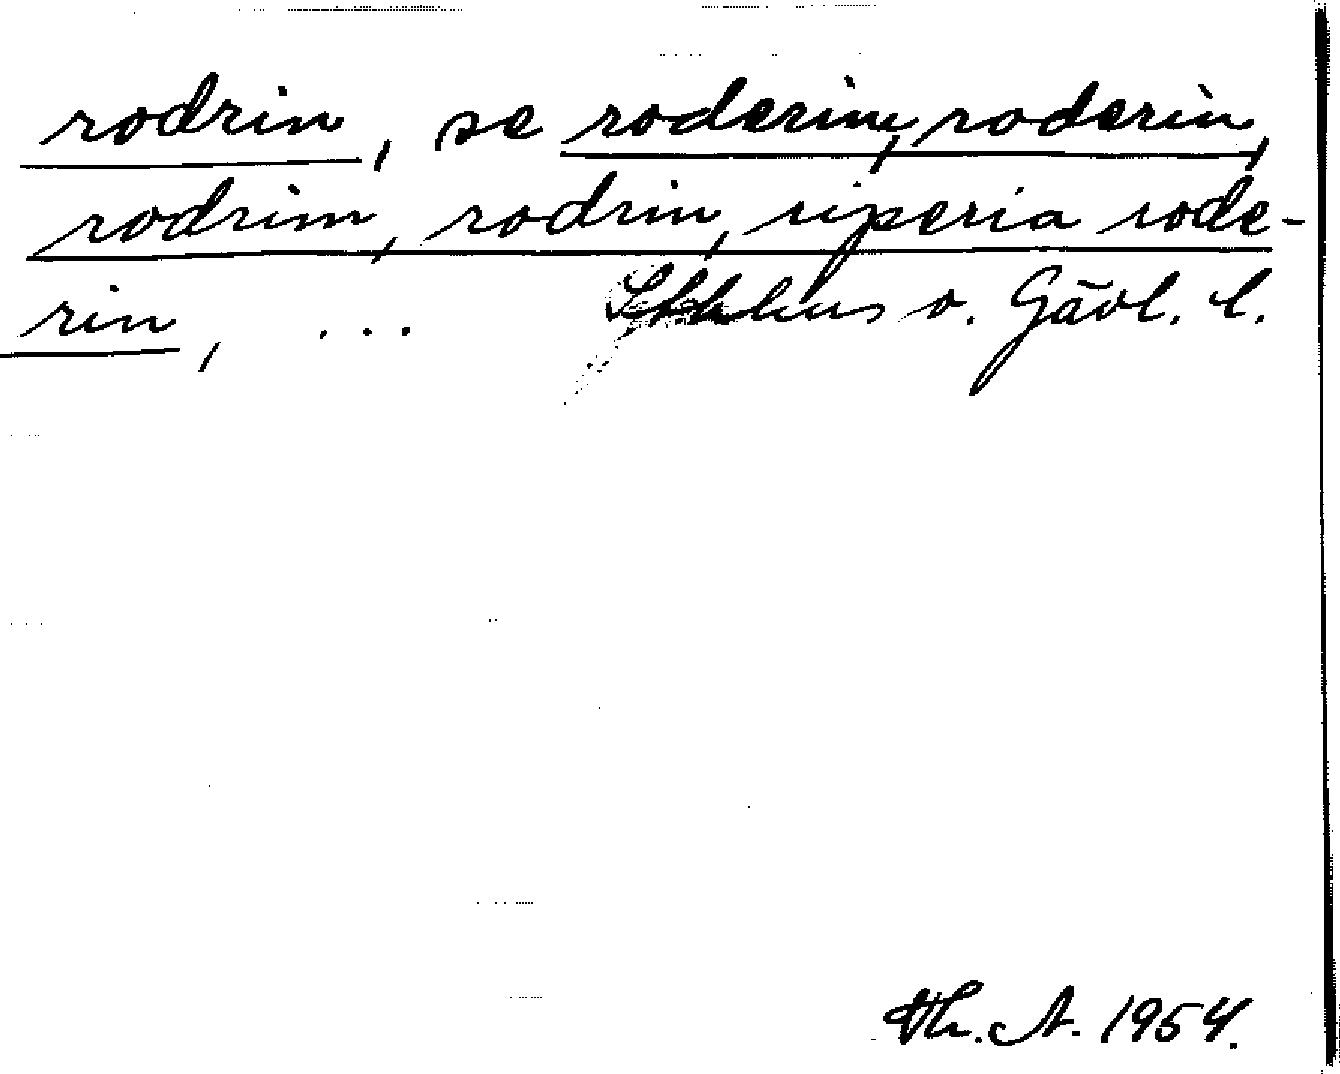 rodrin, se roderin, roderin,
rodrim, rodrin, riperia rode-
rin, ... o. Gävl. l.
Th. A. 1954.